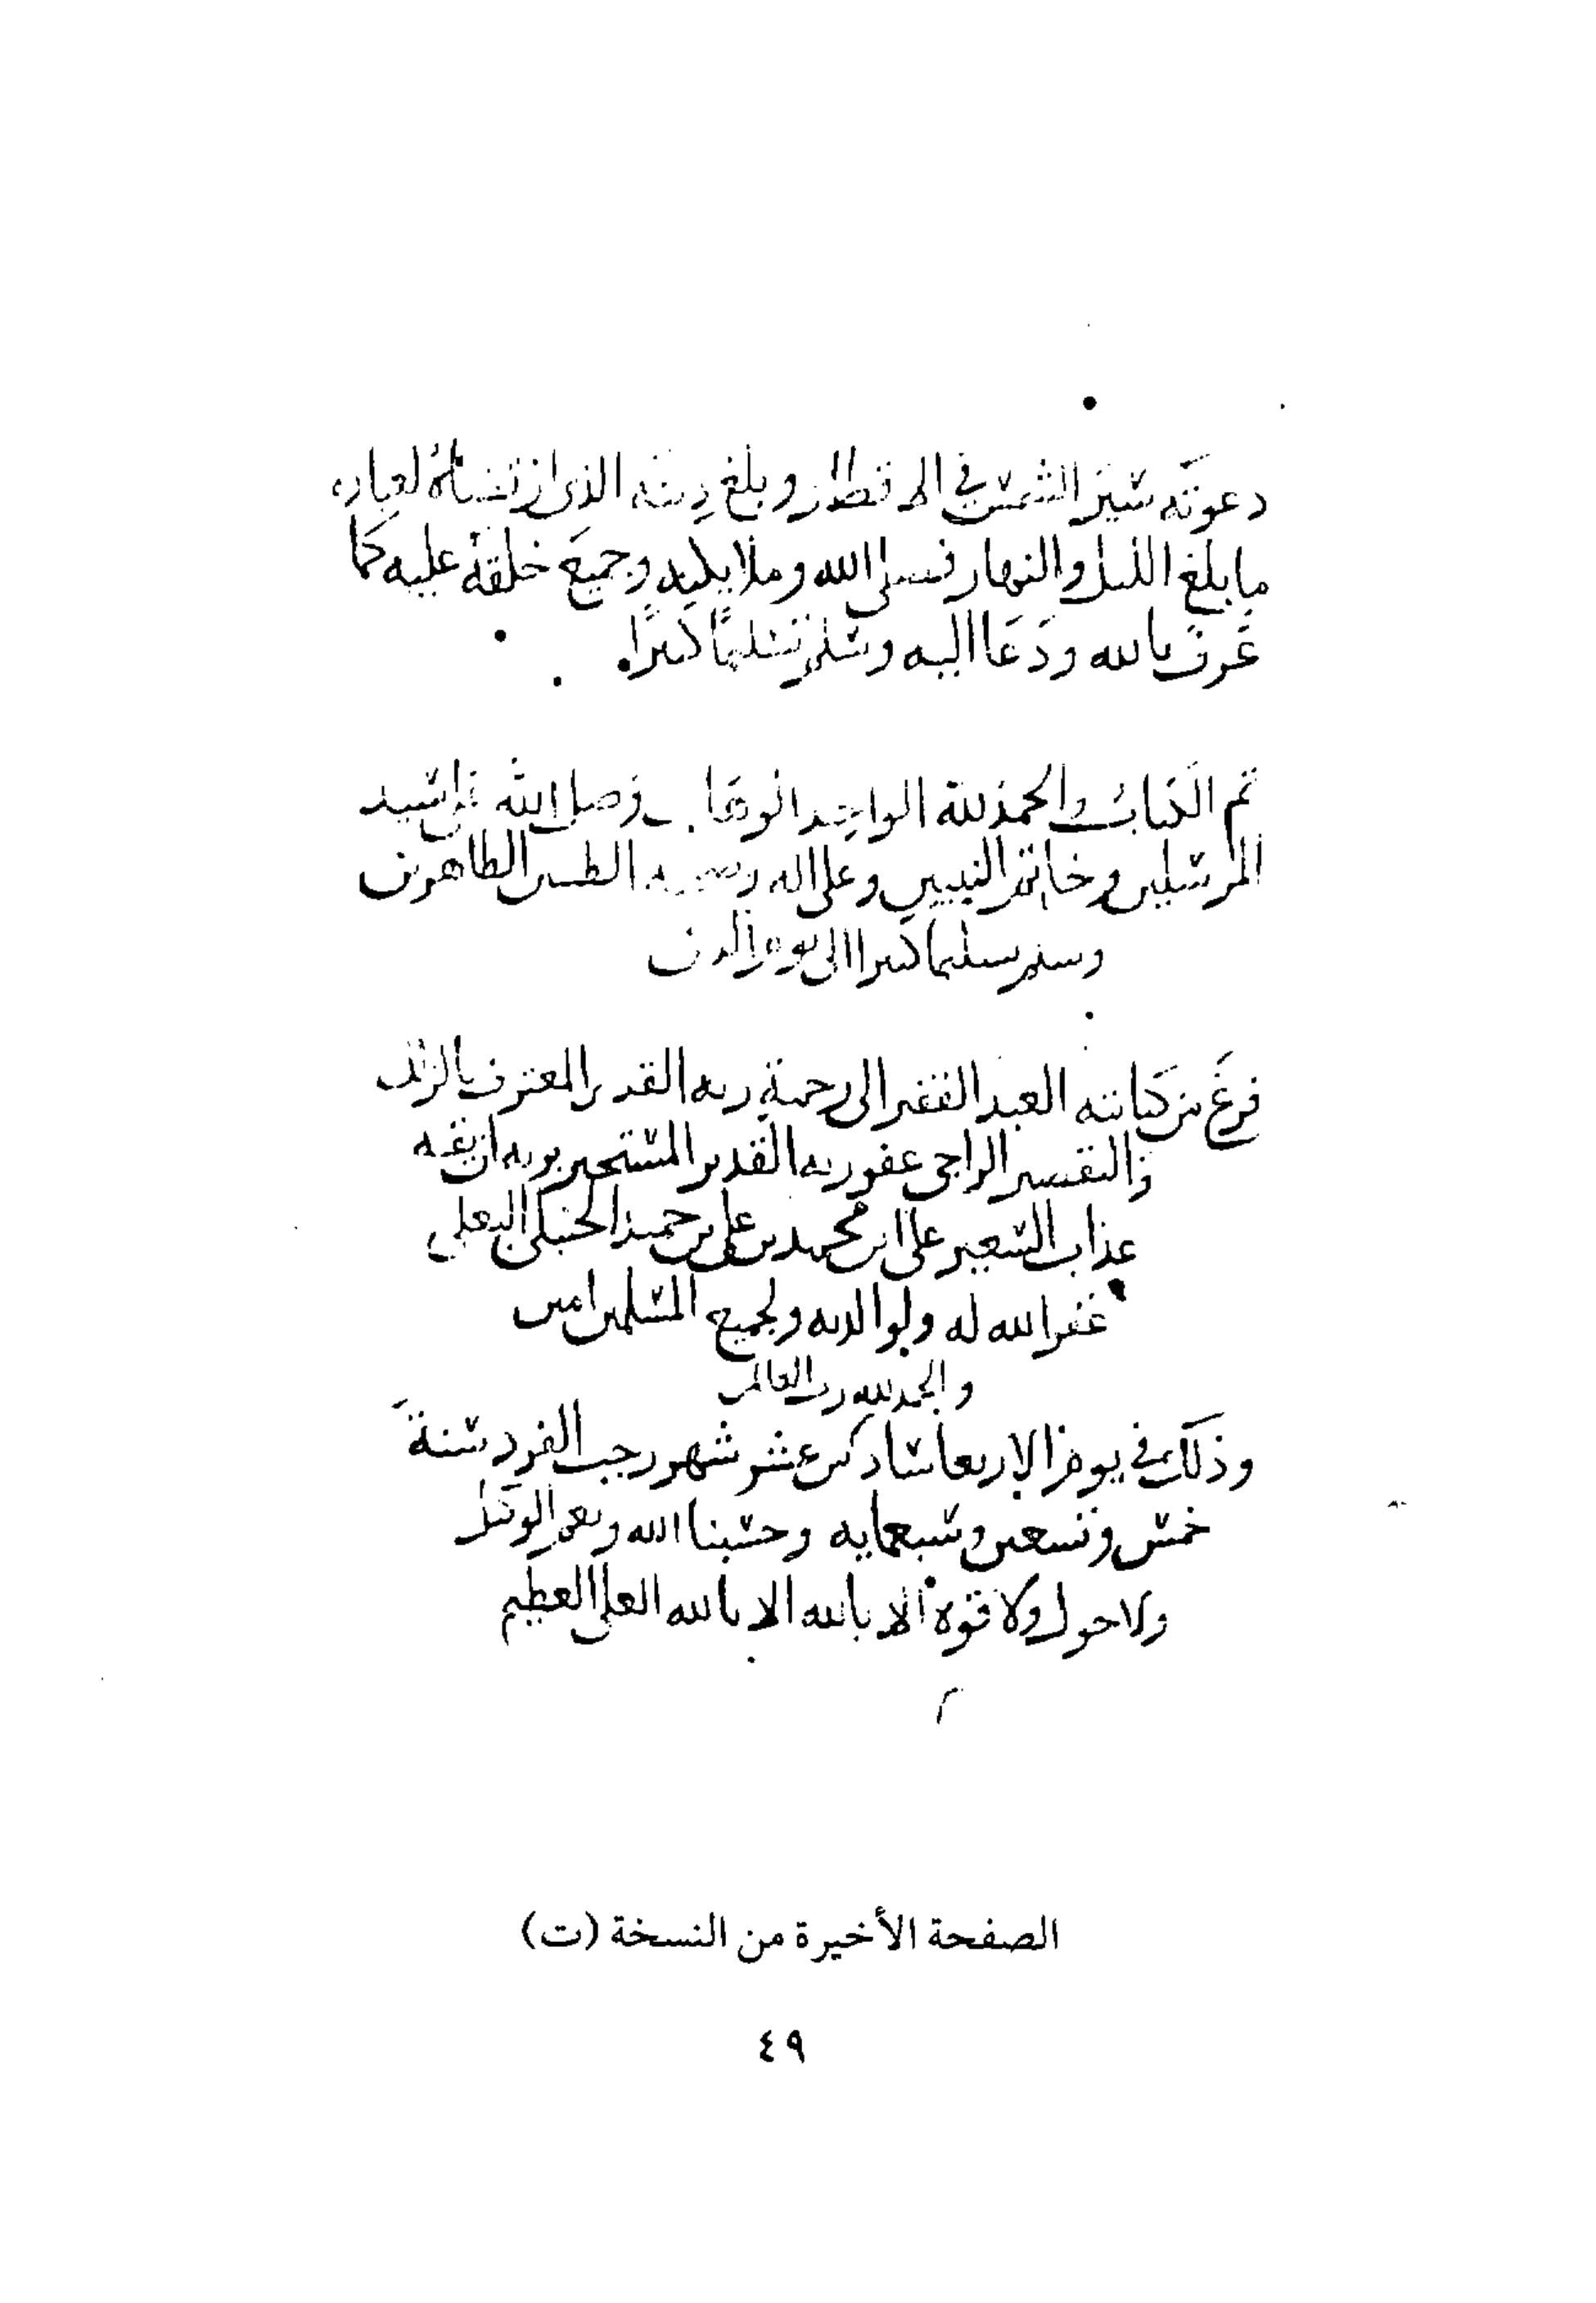 دعوته سير الشمس في الاقطار وبلغ دينه الذي ارتضاه لعباده
ما بلغ الليل والنهار فصلى الله وملايكته وجميع خلقه عليه كما
عرف بالله ودعا اليه وسلم تسليما كثيرا.
تم الكتاب والحمد لله الواحد الوهاب وصلى الله على سيد
المرسلين وخاتم النبيين وعلى اله وصحبه الطيبين الطاهرين
وسلم تسليما كثيرا الى يوم الدين
فرغ من كتابته العبد الفقير الى رحمة ربه القدير المعترف بالزلل
والتقصير الراجي عفو ربه القدير المستجير بربه ان يقه
عذاب السعير علي ابن محمد بن علي بن حميد الحنبلي البعلي
غفر الله له ولوالديه ولجميع المسلمين امين
والحمد لله رب العالمين
وذلك في يوم الاربعا سادس عشر شهر رجب الفرد سنة
خمس وتسعين وسبعمايه وحسبنا الله ونعم الوكيل
ولا حول ولا قوة الا بالله الا بالله العلي العظيم
الصفحة الأخيرة من النسخة (ت)
٤٩